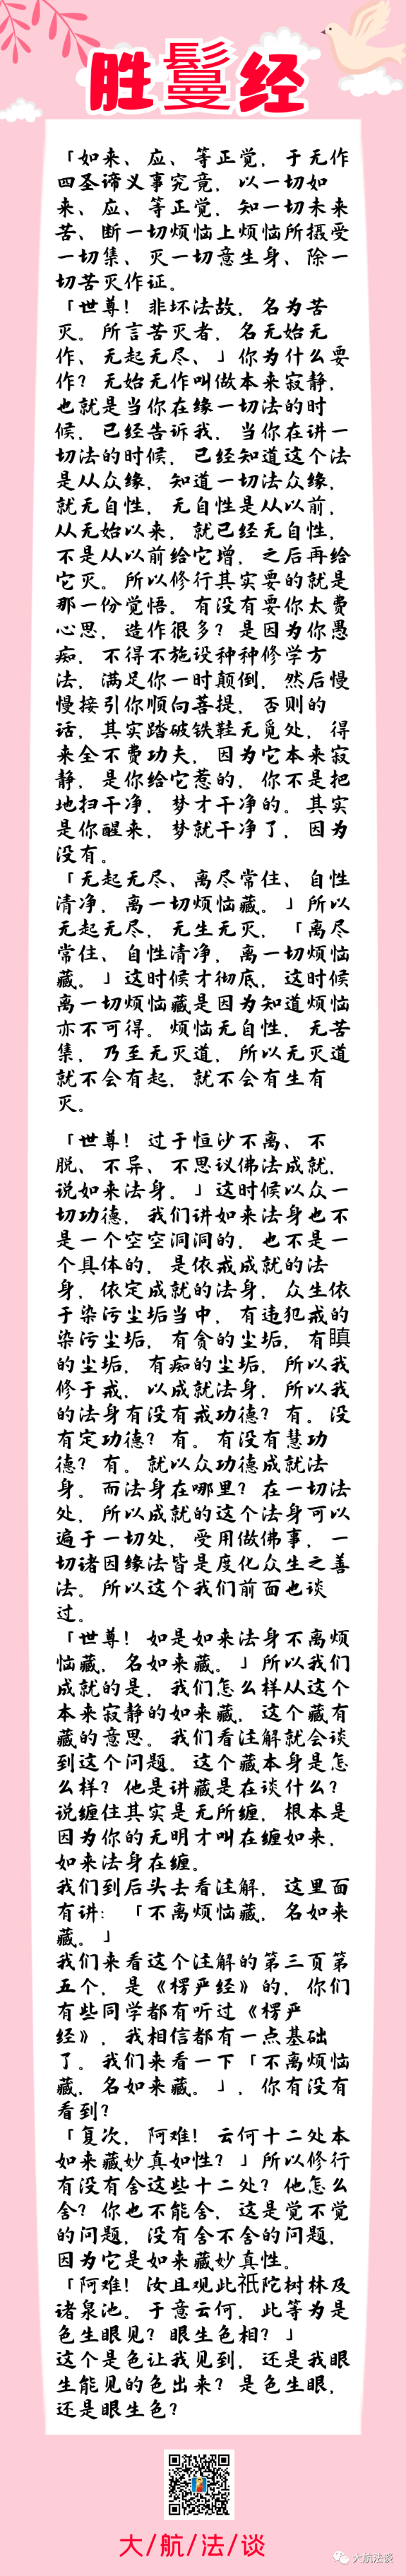 胜鬘经
「如来、应、等正觉，于无作
四圣谛义事究竟，以一切如
来、应、等正觉，知一切未来
苦、断一切烦恼上烦恼所摄受
一切集、灭一切意生身、除一
切苦灭作证。
「世尊！非坏法故，名为苦
灭。所言苦灭者，名无始无
作、无起无尽、」你为什么要
作？无始无作叫做本来寂静，
也就是当你在缘一切法的时
候，已经告诉我，当你在讲一
切法的时候，已经知道这个法
是从众缘，知道一切法众缘，
就无自性，无自性是从以前，
从无始以来，就已经无自性，
不是从以前给它增，之后再给
它灭。所以修行其实要的就是
那一份觉悟。有没有要你太费
心思，造作很多？是因为你愚
痴，不得不施设种种修学方
法，满足你一时颠倒，然后慢
慢接引你顺向菩提，否则的
话，其实踏破铁鞋无觅处，得
来全不费功夫，因为它本来寂
静，是你给它惹的，你不是把
地扫干净，梦才干净的。其实
是你醒来，梦就干净了，因为
没有。
「无起无尽、离尽常住、自性
清净，离一切烦恼藏。」所以
无起无尽，无生无灭，「离尽
常住、自性清净，离一切烦恼
藏。」这时候才彻底，这时候
离一切烦恼藏是因为知道烦恼
亦不可得。烦恼无自性，无苦
集，乃至无灭道，所以无灭道
就不会有起，就不会有生有
灭。
「世尊！过于恒沙不离、不
脱、不异、不思议佛法成就，
说如来法身。」这时候以众一
切功德，我们讲如来法身也不
是一个空空洞洞的，也不是一
个具体的，是依戒成就的法
身，依定成就的法身，众生依
于染污尘垢当中，有违犯戒的
染污尘垢，有贪的尘垢，有瞋
的尘垢，有痴的尘垢，所以我
修于戒，以成就法身，所以我
的法身有没有戒功德？有。没
有定功德？有。有没有慧功
德？有。就以众功德成就法
身。而法身在哪里？在一切法
处，所以成就的这个法身可以
遍于一切处，受用做佛事，一
切诸因缘法皆是度化众生之善
法。所以这个我们前面也谈
过。
「世尊！如是如来法身不离烦
恼藏，名如来藏。」所以我们
成就的是，我们怎么样从这个
本来寂静的如来藏，这个藏有
藏的意思。我们看注解就会谈
到这个问题。这个藏本身是怎
么样？他是讲藏是在谈什么？
说缠住其实是无所缠，根本是
因为你的无明才叫在缠如来，
如来法身在缠。
我们到后头去看注解，这里面
有讲：「不离烦恼藏，名如来
藏。」
我们来看这个注解的第三页第
五个，是《楞严经》的，你们
有些同学都有听过《楞严
经》，我相信都有一点基础
了。我们来看一下「不离烦恼
藏，名如来藏。」，你有没有
看到？
「复次，阿难！云何十二处本
如来藏妙真如性？」所以修行
有没有舍这些十二处？他怎么
舍？你也不能舍，这是觉不觉
的问题，没有舍不舍的问题，
因为它是如来藏妙真性。
「阿难！汝且观此祇陀树林及
诸泉池。于意云何，此等为是
色生眼见？眼生色相？」
这个是色让我见到，还是我眼
生能见的色出来？是色生眼，
还是眼生色？
大/航/法/谈
大航法谈